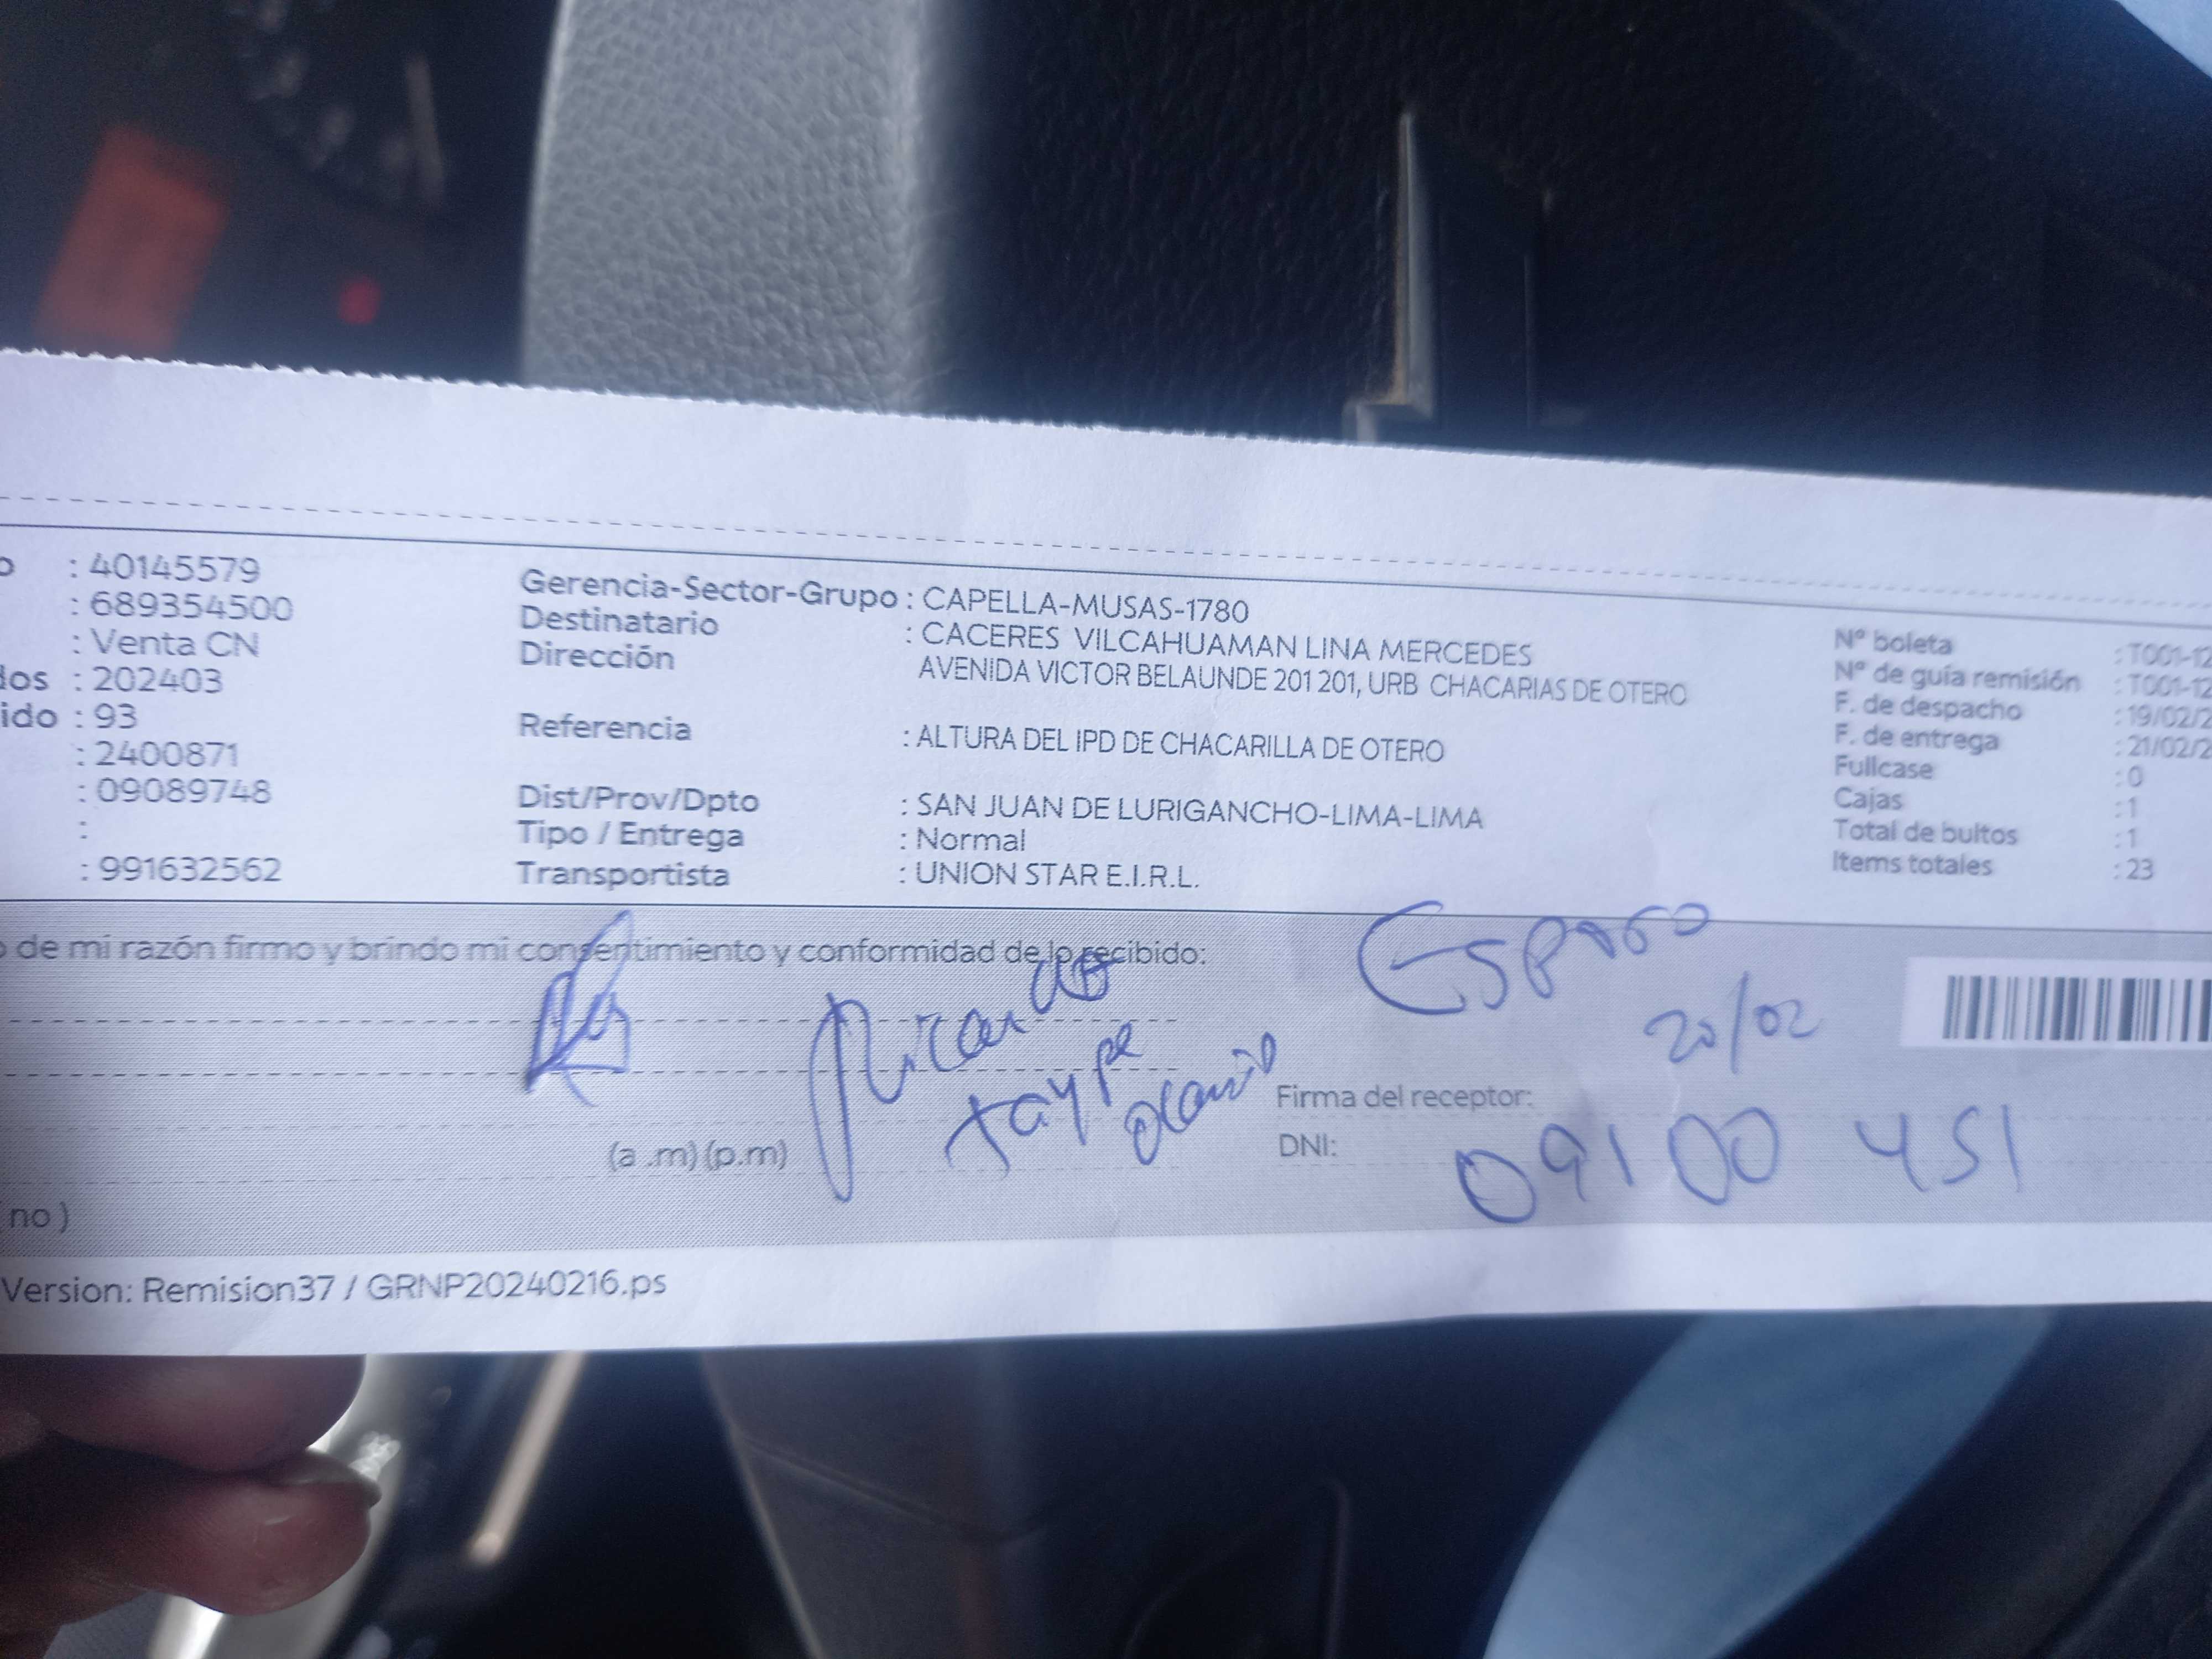 : 40145579
: 689354500
: Venta CN
dos : 202403
ido : 93
: 2400871
: 09089748
:
: 991632562
Gerencia-Sector-Grupo : CAPELLA-MUSAS-1780
Destinatario : CACERES VILCAHUAMAN LINA MERCEDES
Dirección AVENIDA VICTOR BELAUNDE 201 201, URB CHACARIAS DE OTERO
Referencia : ALTURA DEL IPD DE CHACARILLA DE OTERO
Dist/Prov/Dpto : SAN JUAN DE LURIGANCHO-LIMA-LIMA
Tipo / Entrega : Normal
Transportista : UNION STAR E.I.R.L.
Nº boleta : T001-12
Nº de guía remisión : T001-12
F. de despacho : 19/02/2
F. de entrega : 21/02/2
Fullcase : 0
Cajas : 1
Total de bultos : 1
Items totales : 23
o de mi razón firmo y brindo mi consentimiento y conformidad de lo recibido:
Esposo
20/02
Ricardo
taype
Firma del receptor:
(a .m) (p.m)
DNI: 09100451
no )
Version: Remision37 / GRNP20240216.ps